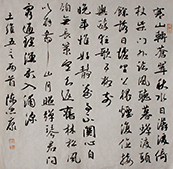 寒山轉蒼翠秋水日潺湲倚
杖柴門外臨風聽暮蟬渡頭
餘落日墟里上孤煙復值接
輿醉狂歌五柳前
晚年惟好靜萬事不關心自
顧無長策空知返舊林松風
吹解帶山月照彈琴君問
窮通理漁歌入浦深
王維五言兩首陳忠康